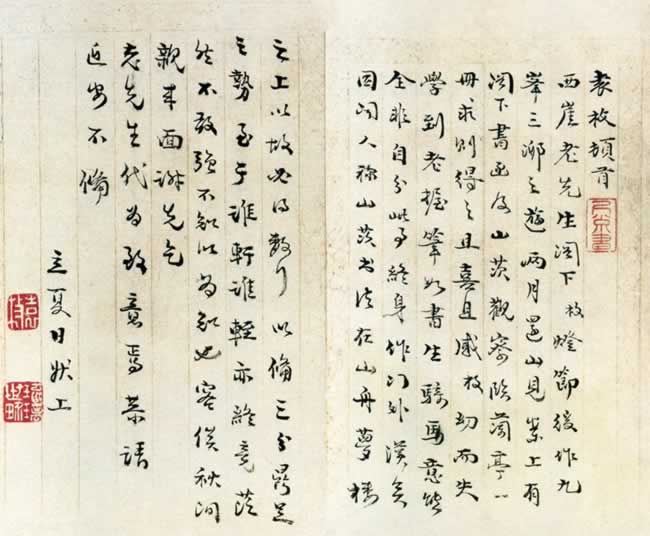 袁枚頓首
西崖老先生閣下枚燈節後作九
峯三泖之遊兩月還山見案上有
閣下書並及山茨觀察臨蘭亭一
冊求則得之且喜且感枚幼而失
學到老握筆如書生騎馬意態
全非自分此事終身作門外漢矣
因聞人称山茨書法在山舟夢樓
之上以故必得數行以備三分鼎足
之勢至于誰軒誰輊亦終竟茫
然不敢強不知以為知也容俟秋間
親来面謝先乞
老先生代為致意焉恭請
近安不備
立夏日狀上
袁枚